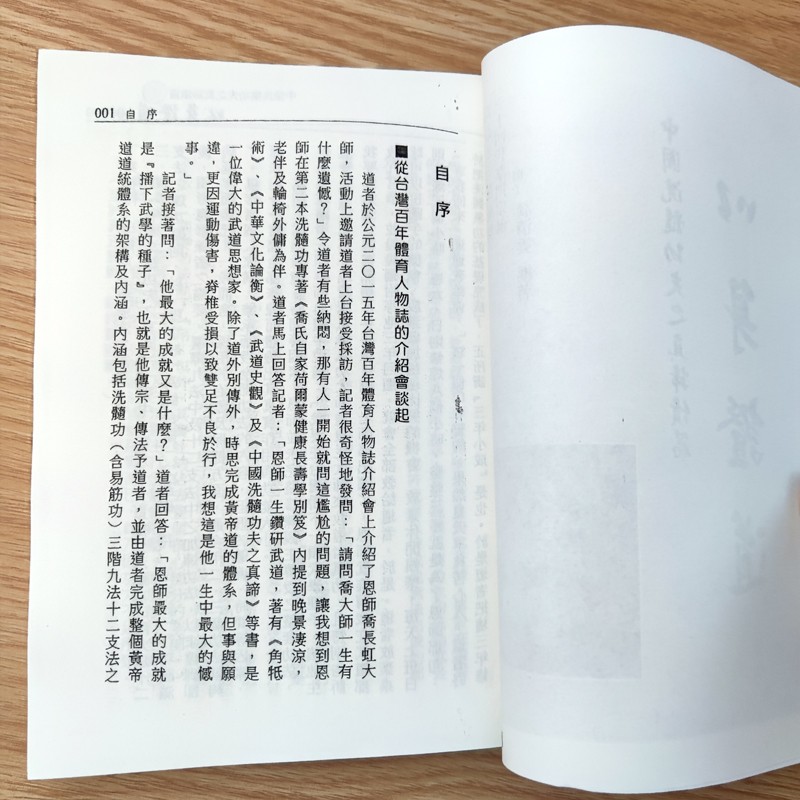 001 自序
自序
■從台灣百年體育人物誌的介紹會談起
道者於公元二〇一五年台灣百年體育人物誌介紹會上介紹了恩師喬長虹大
師，活動上邀請道者上台接受採訪，記者很奇怪地發問：「請問喬大師一生有
什麼遺憾？」令道者有些納悶，那有人一開始就問這尷尬的問題，讓我想到恩
師在第二本洗髓功專著《喬氏自家荷爾蒙健康長壽學別笈》內提到晚景淒涼，
老伴及輪椅外傭為伴。道者馬上回答記者：「恩師一生鑽研武道，著有《角牴
術》、《中華文化論衡》、《武道史觀》及《中國洗髓功夫之真諦》等書，是
一位偉大的武道思想家。除了道外別傳外，時思完成黃帝道的體系，但事與願
違，更因運動傷害，脊椎受損以致雙足不良於行，我想這是他一生中最大的憾
事。」
記者接著問：「他最大的成就又是什麼？」道者回答：「恩師最大的成就
是『播下武學的種子』，也就是他傳宗、傳法予道者，並由道者完成整個黃帝
道道統體系的架構及內涵。內涵包括洗髓功（含易筋功）三階九法十二支法之